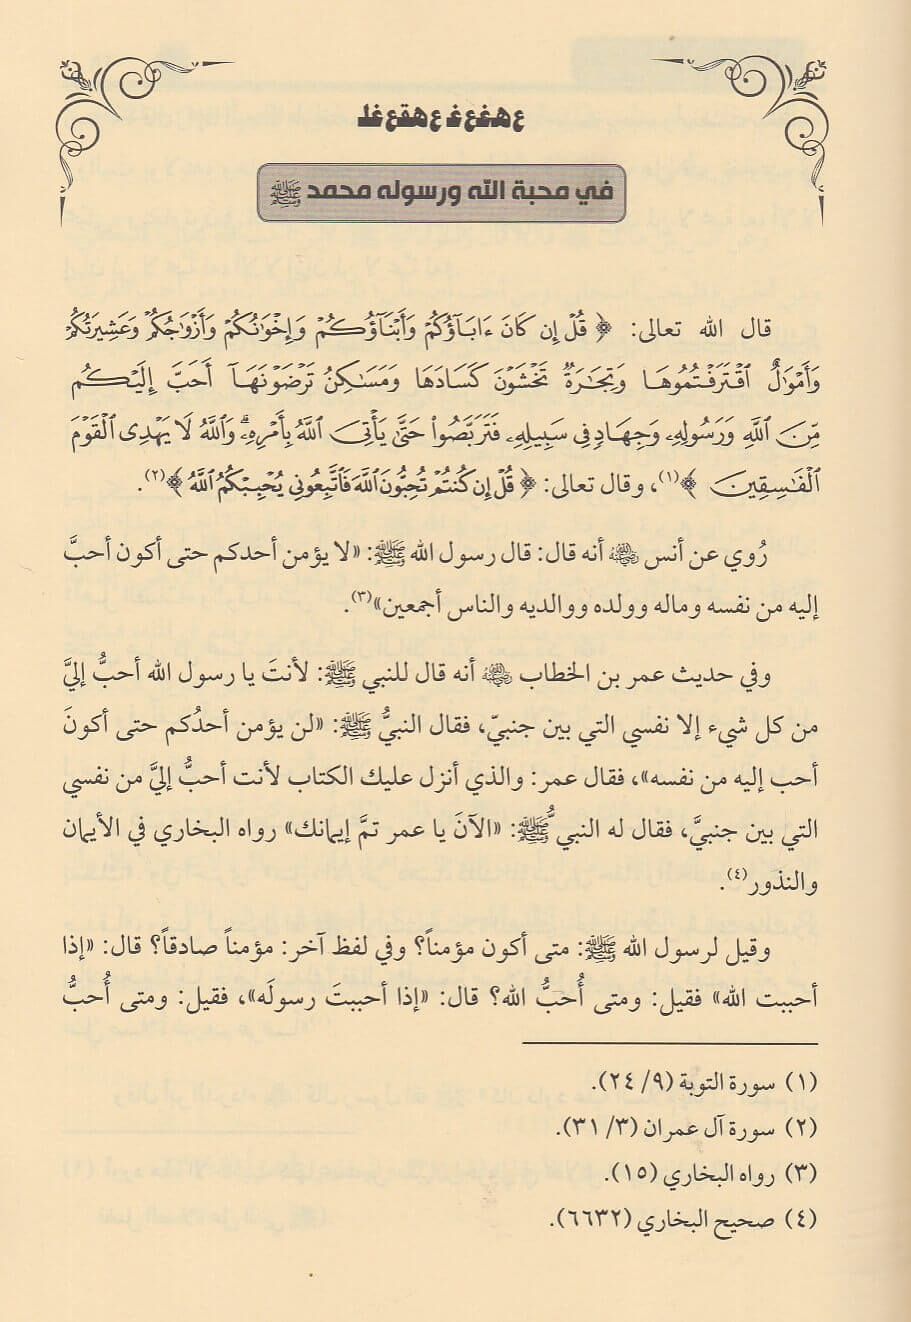 ع هـغـع غـ ع هـقـع غلـ
في محبة الله ورسوله محمد ﷺ
قال الله تعالى: ﴿ قُلْ إِن كَانَ ءَابَآؤُكُمْ وَأَبْنَآؤُكُمْ وَإِخْوَٰنُكُمْ وَأَزْوَٰجُكُمْ وَعَشِيرَتُكُمْ
وَأَمْوَٰلٌ ٱقْتَرَفْتُمُوهَا وَتِجَٰرَةٌ تَخْشَوْنَ كَسَادَهَا وَمَسَٰكِنُ تَرْضَوْنَهَآ أَحَبَّ إِلَيْكُم
مِّنَ ٱللَّهِ وَرَسُولِهِۦ وَجِهَادٍ فِى سَبِيلِهِۦ فَتَرَبَّصُوا۟ حَتَّىٰ يَأْتِىَ ٱللَّهُ بِأَمْرِهِۦ ۗ وَٱللَّهُ لَا يَهْدِى ٱلْقَوْمَ
ٱلْفَٰسِقِينَ ﴾(١)، وقال تعالى: ﴿ قُلْ إِن كُنتُمْ تُحِبُّونَ ٱللَّهَ فَٱتَّبِعُونِى يُحْبِبْكُمُ ٱللَّهُ ﴾(٢).
رُوي عن أنس رضي الله عنه أنه قال: قال رسول الله ﷺ: «لا يؤمن أحدكم حتى أكون أحبَّ
إليه من نفسه وماله وولده ووالديه والناس أجمعين»(٣).
وفي حديث عمر بن الخطاب رضي الله عنه أنه قال للنبي ﷺ: لأنتَ يا رسول الله أحبُّ إليَّ
من كل شيء إلا نفسي التي بين جنبيّ، فقال النبيُّ ﷺ: «لن يؤمن أحدُكم حتى أكونَ
أحب إليه من نفسه»، فقال عمر: والذي أنزل عليك الكتاب لأنت أحبُّ إليَّ من نفسي
التي بين جنبيَّ، فقال له النبيُّ ﷺ: «الآنَ يا عمر تمَّ إيمانك» رواه البخاري في الأيمان
والنذور(٤).
وقيل لرسول الله ﷺ: متى أكون مؤمناً؟ وفي لفظ آخر: مؤمناً صادقاً؟ قال: «إذا
أحببت الله» فقيل: ومتى أُحبُّ الله؟ قال: «إذا أحببتَ رسولَه»، فقيل: ومتى أُحبُّ
(١) سورة التوبة (٩/ ٢٤).
(٢) سورة آل عمران (٣/ ٣١).
(٣) رواه البخاري (١٥).
(٤) صحيح البخاري (٦٦٣٢).